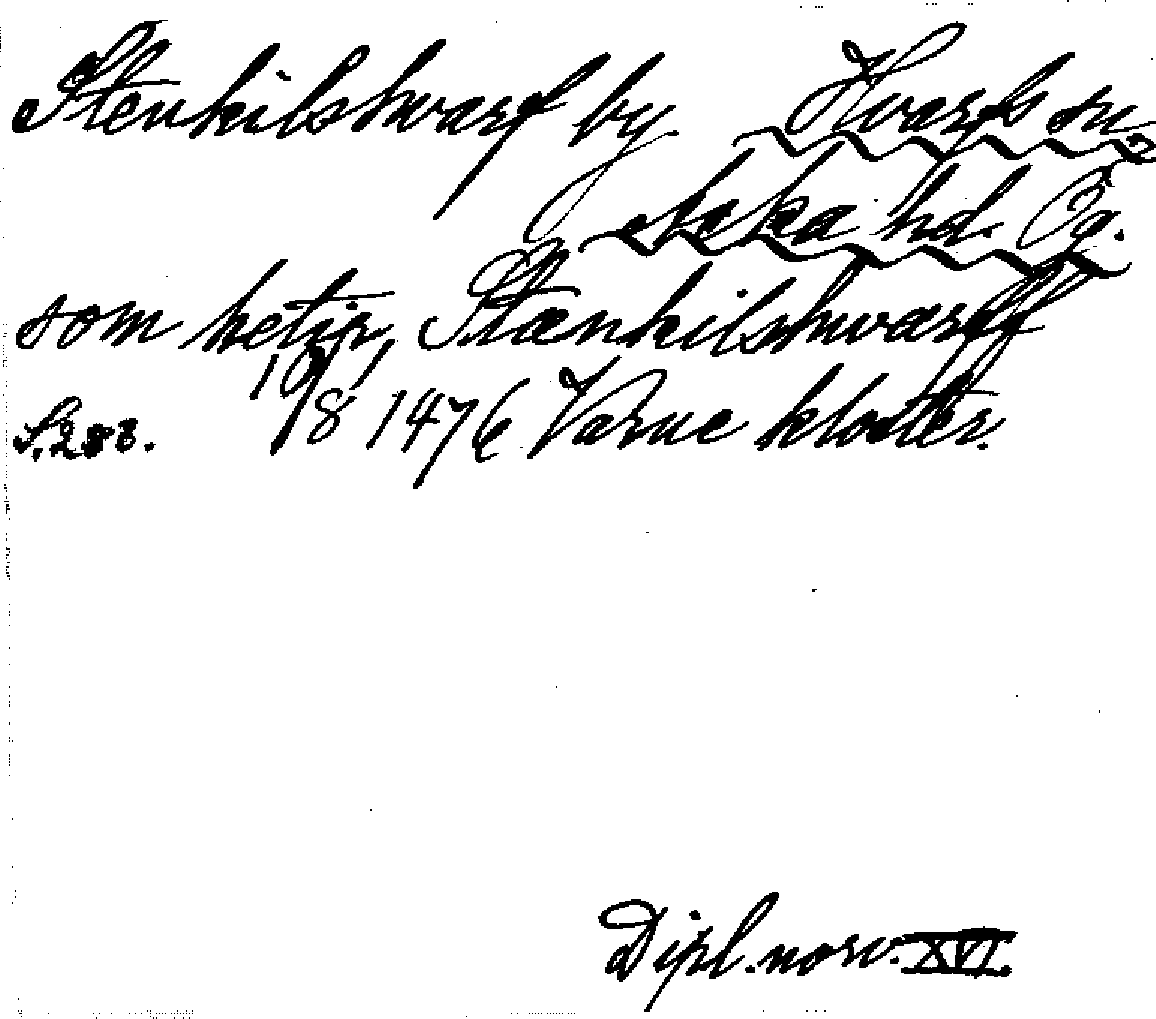 Stenkilshwarf by Hvarfs sn,
Aska hd. Ög.
som hetir Stænkilshwærff
S. 283. 10/8 1476 Varne kloster.
Dipl. norv. XVI.